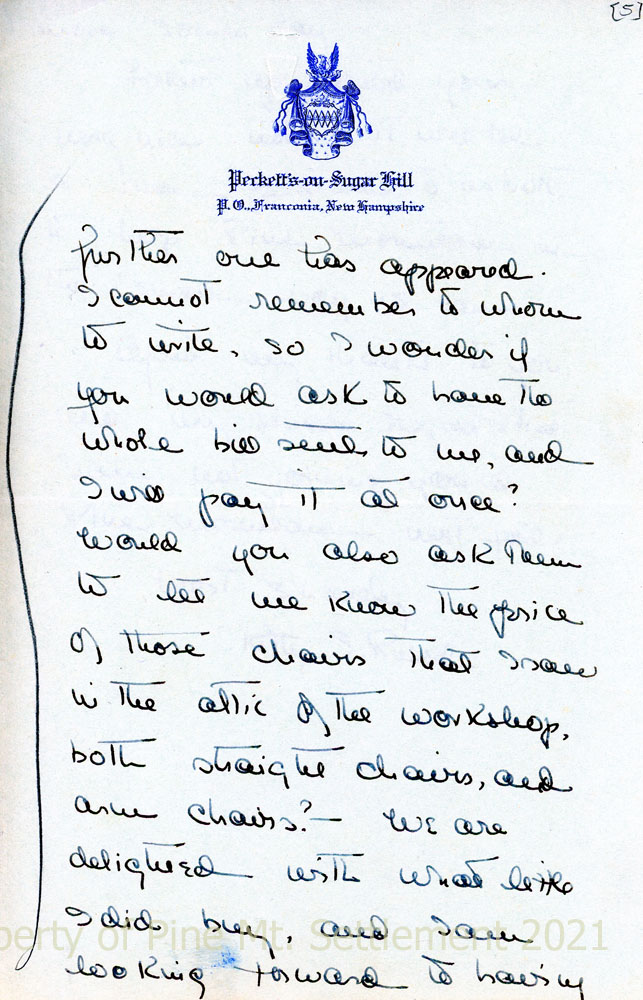 [5]
Peckett's-on-Sugar Hill
P. O., Franconia, New Hampshire
further one has appeared.
I cannot remember to whom
to write, so I wonder if
you would ask to have the
whole bill sent to me, and
I will pay it at once?
Would you also ask them
to let me know the price
of those chairs that I saw
in the attic of the workshop,
both straight chairs, and
arm chairs? — We are
delighted with what little
I did buy, and I am
perty of Pine Mt. Settlement 2021
looking forward to having